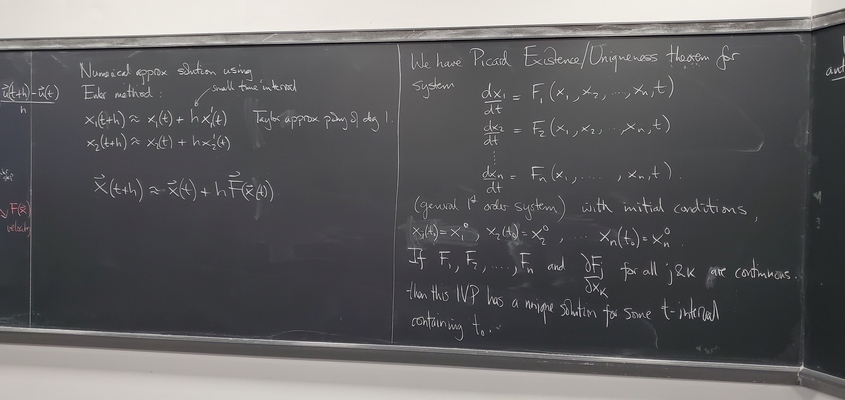 u⃗(t+h) - u⃗(t)
h
F(x⃗)
velocity
Numerical approx solution using
Euler method:
small time interval
x₁(t+h) ≈ x₁(t) + hx₁'(t) Taylor approx poly of deg 1.
x₂(t+h) ≈ x₂(t) + hx₂'(t)
x⃗(t+h) ≈ x⃗(t) + hF⃗(x⃗(t))
We have Picard Existence/Uniqueness theorem for
system
dx₁/dt = F₁(x₁, x₂, ..., xₙ, t)
dx₂/dt = F₂(x₁, x₂, ... xₙ, t)
⋮
dxₙ/dt = Fₙ(x₁, ...., xₙ, t).
(general 1st order system) with initial conditions,
x₁(t₀) = x₁⁰, x₂(t₀) = x₂⁰, .... xₙ(t₀) = xₙ⁰.
If F₁, F₂, ...., Fₙ and ∂Fⱼ/∂xₖ for all j & k are continuous.
then this IVP has a unique solution for some t-interval
containing t₀.